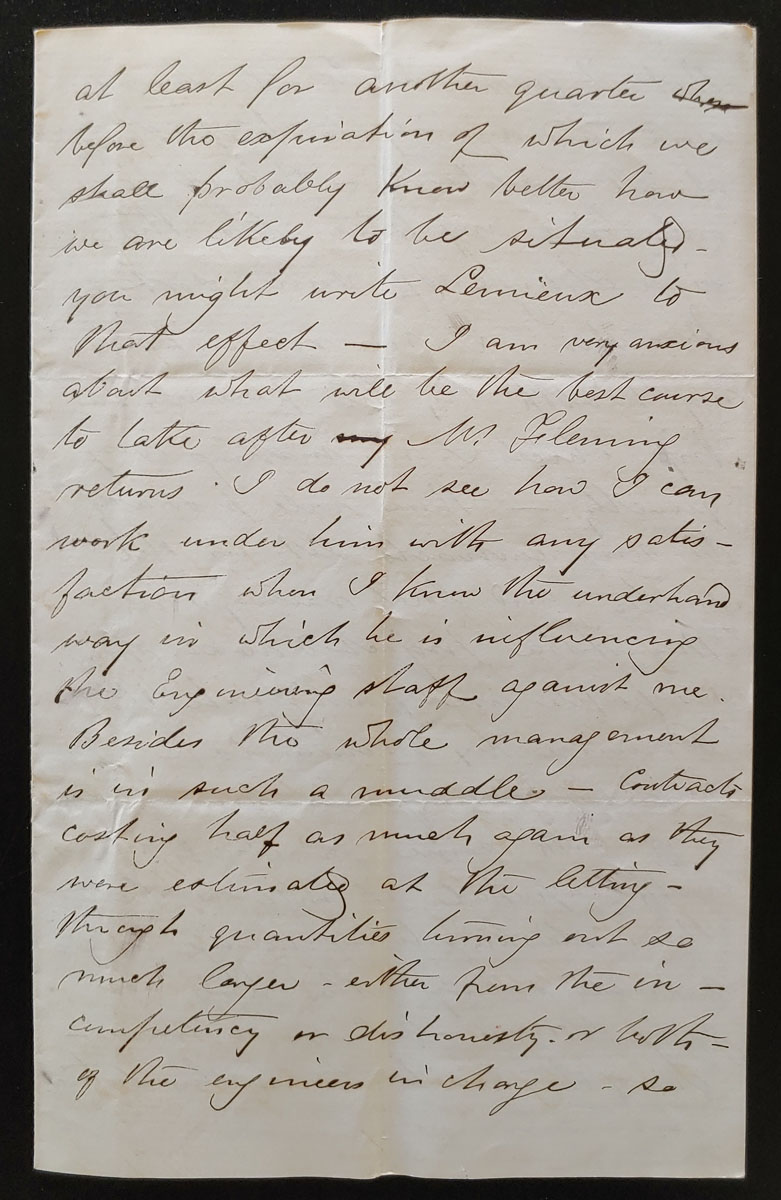 at least for another quarter when
before the expiration of which we
shall probably know better how
we are likely to be situated -
you might write Lemieux to
that effect — I am very anxious
about what will be the best course
to take after my Mr Fleming
returns. I do not see how I can
work under him with any satis-
faction when I know the underhand
way in which he is influencing
the Engineering staff against me.
Besides the whole management
is in such a muddle - Contracts
costing half as much again as they
were estimated at the letting -
through quantities turning out so
much larger - either from the in-
competency or dishonesty. or both -
of the engineers in charge - so